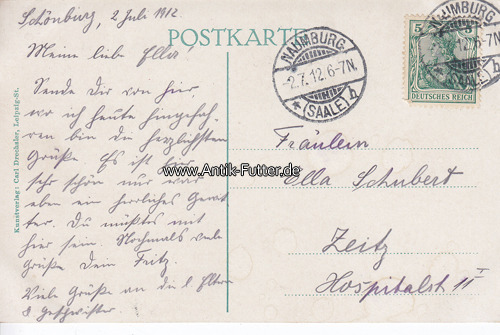 Schönburg, 2 Juli 1912.
POSTKARTE
Meine liebe Ella!
Sende Dir von hier,
wo ich heute hingefah-
ren bin die herzlichsten
Grüße. Es ist hier
sehr schön nur war
eben ein herrliches Gewit-
ter. Du müßtest mit
hier sein. Nochmals viele
Grüße Dein Fritz.
Viele Grüße an die l. Eltern
& Geschwister.
NAUMBURG
-2.7.12.6-7N.
* (SAALE) h
NAUMBURG
12.6-7N.
(SAALE) h
5 5
DEUTSCHES REICH
www.Antik-Futter.de
Fräulein
Ella Schubert
Zeitz
Hospitalst II I
Kunstverlag: Carl Drechsler, Leipzig-St.